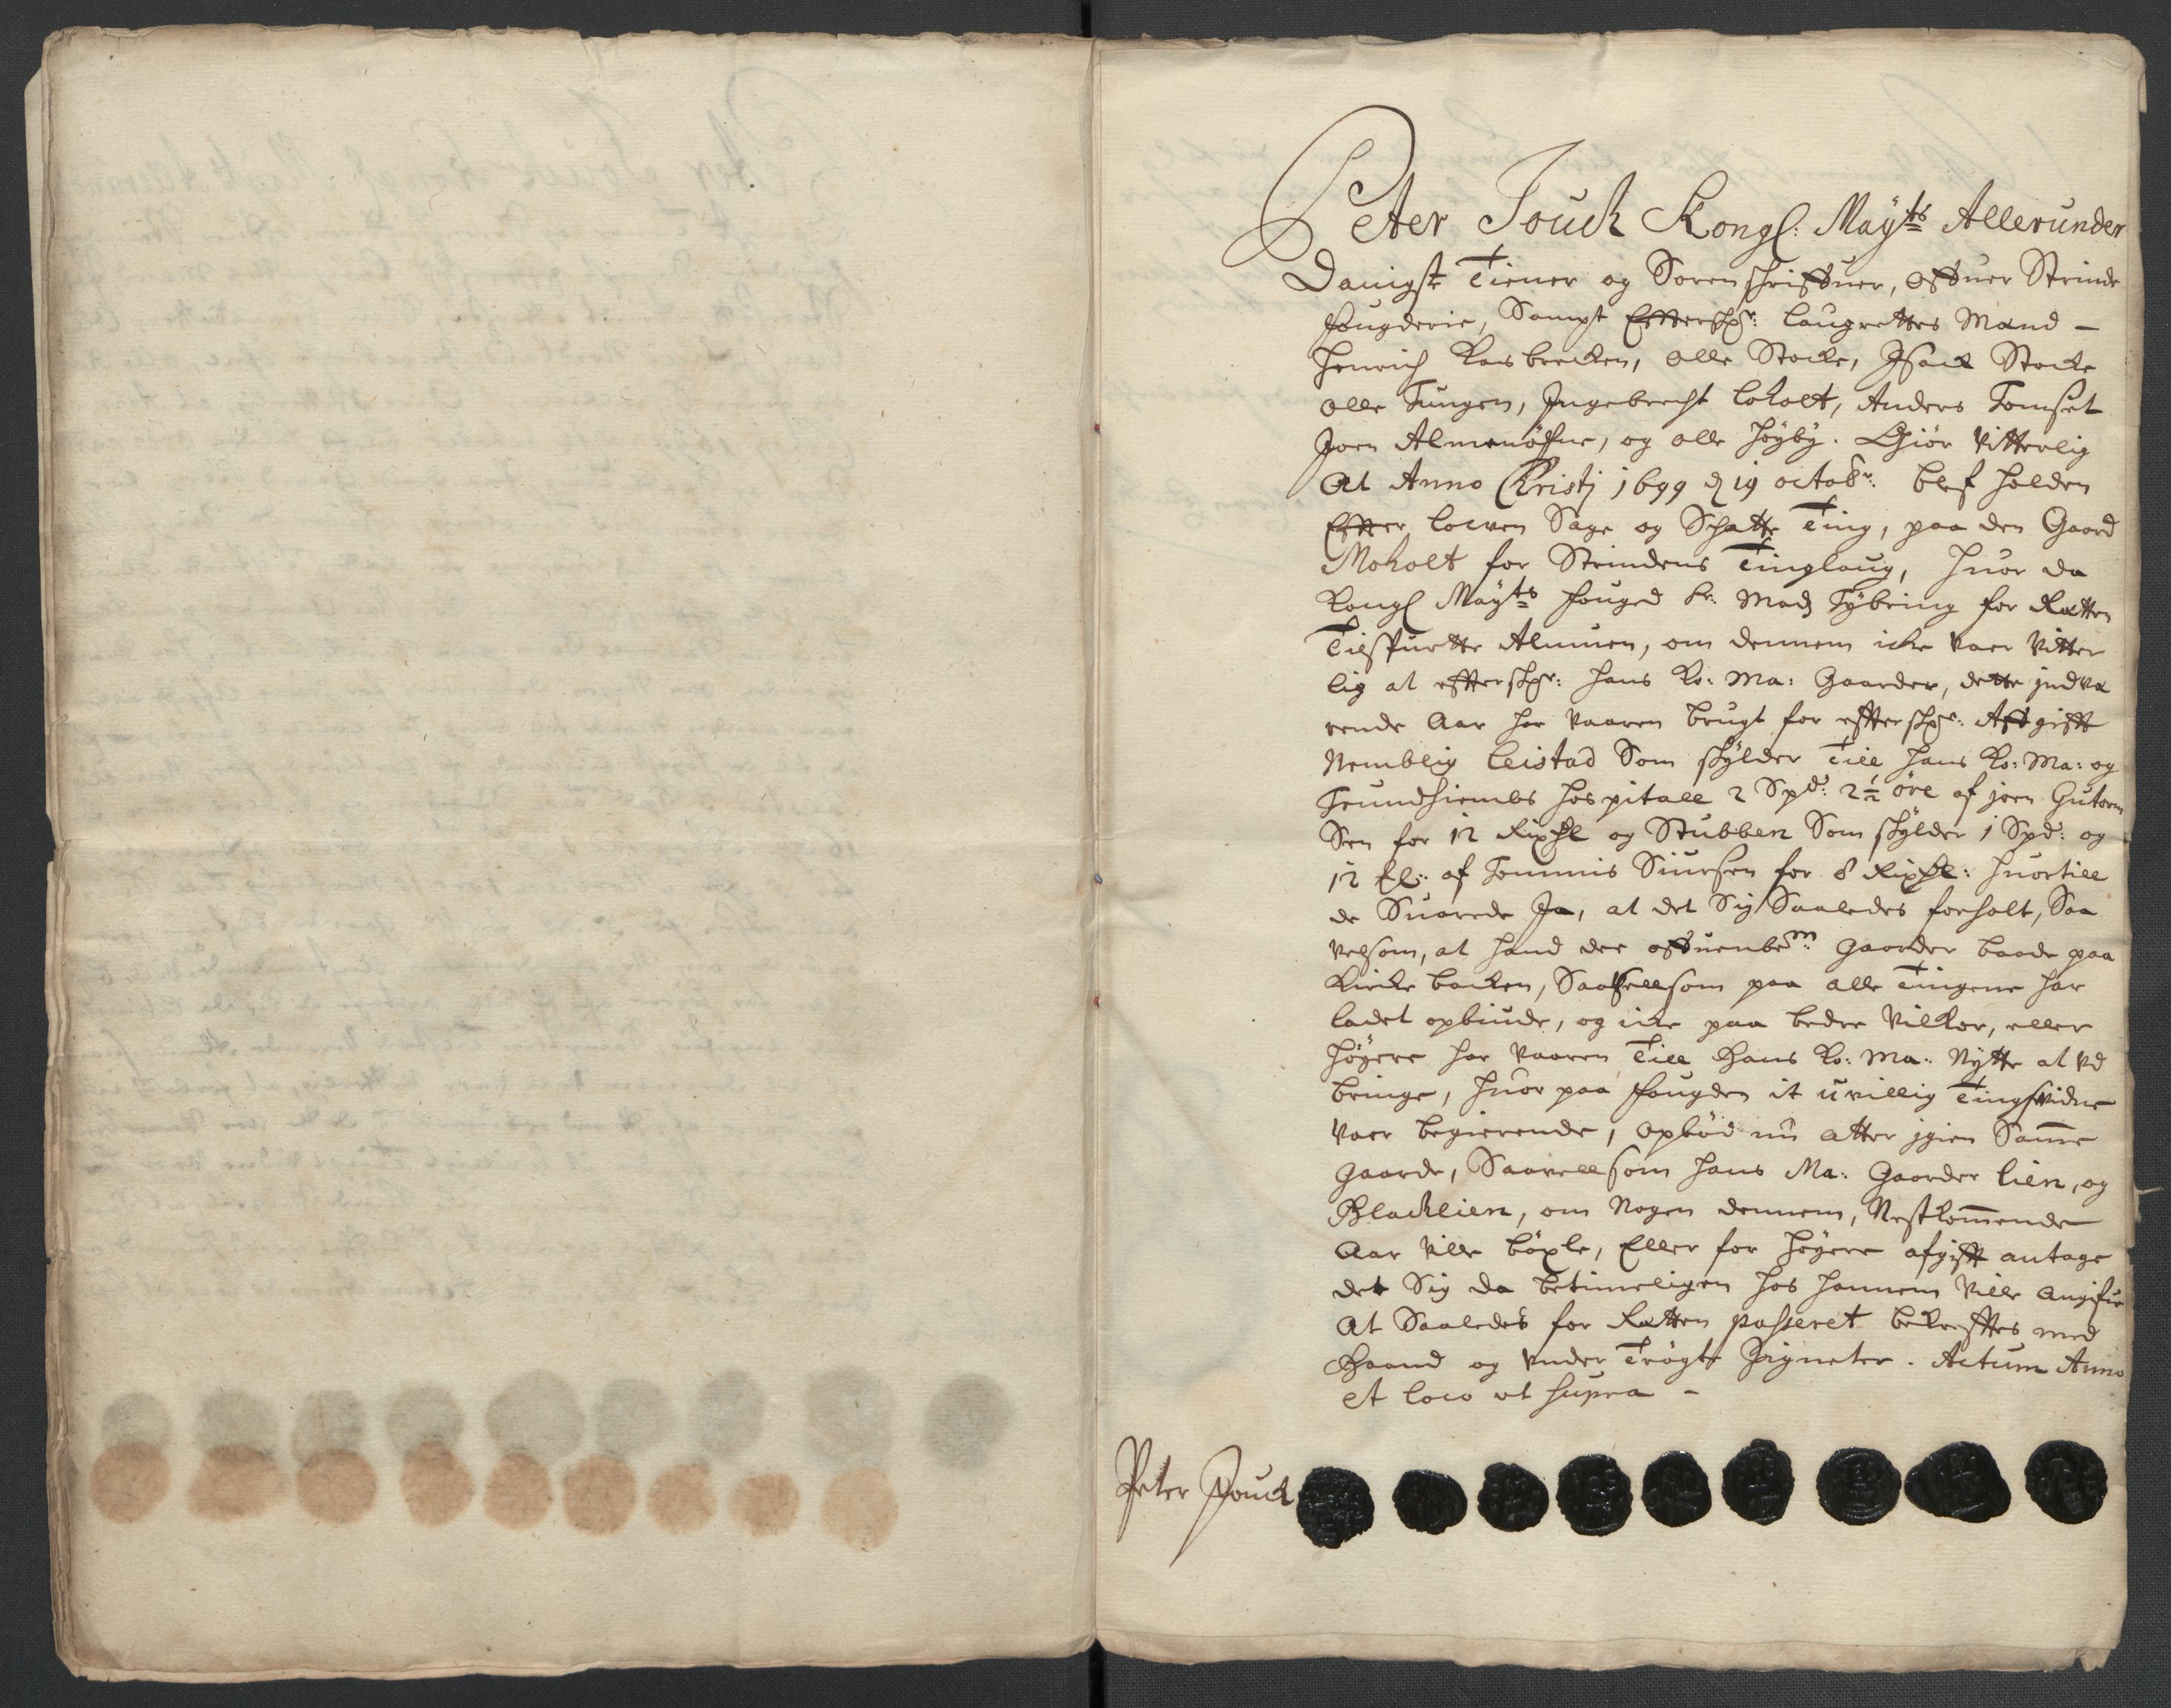 Peter Jouch Kongl: Mayts Allerunder
Danigst Tiener og Sorenschriffuer, offuer Strinde
fougderie, Sampt Effterschr: Laugrettes Mænd –
Henrich Karsbrecken, Olle Stocke, Isack Stocke
Olle Tungen, Ingebrecht Loholt, Anders Tomset
Joen Almenøfne, og Olle Høyby. Giør Vitterlig
At Anno Christi 1699 d 19 octobr: blef holden
Effter Lowen Sage og Schatte Ting, paa den Gaard
Moholt for Strindens Tinglaug, huor da
Kongl Mayts fouged Sr. Mads Tybring for Rætten
Tilspurtte Almuen, om dennem icke vaer vitter
lig at effterschr: hans Ko: Ma: Gaarder, dette indvæ
rende Aar har vaaren brugt for effterschr: Affgifft
Nemblig Leistad Som skylder Till hans Ko: Ma: og
Trundhiembs hospitall 2 Spd: 2½ øre af joen Gutorm
Sen for 12 Rixdl og Stubben Som skylder 1 Spd: og
12 ℔: af Tommis Siursen for 8 Rixdl: huortill
de Suarede Ja, at det Sig Saaledes forholt, Saa
velsom, at hand der offuenbem: Gaarder baade paa
Kircke backen, Saavellsom paa alle Tingene har
ladet opbiude, og icke paa bedre Vilkor, eller
høyere har vaaren Till Hans Ko: Ma: Nytte at vd
bringe, huor paa fougden it uvillig Tingsvidne
vaer begierende, opbød nu atter igien Samme
gaarde, Saavellsom hans Ma: Gaarder Lien, og
Blachlien, om Nogen dennem, Nestkommende
Aar ville bøxle, Eller for høyere afgifft antage
det Sig da betimeligen hos hannem ville angifue
At Saaledes for Rætten passeret bekrefftes med
Haand og vnder Trøgte Zigneter. Actum Anno
et loco ut supra –
Peter Jouch